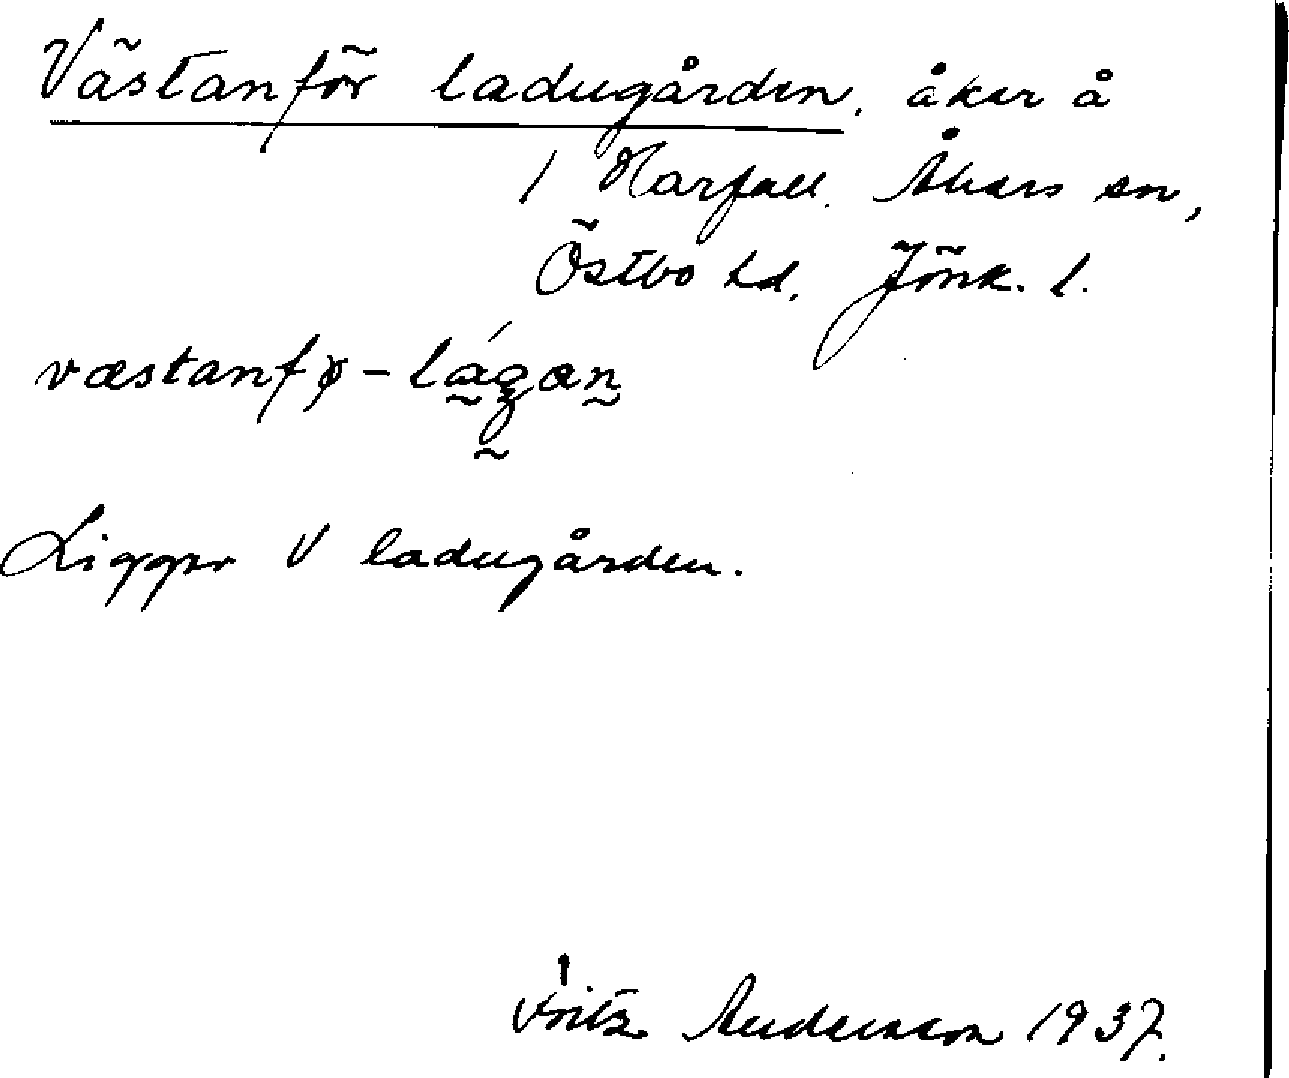 Västanför ladugården, åker å
1 Harfall. Åkers sn,
Östbo hd. Jönk. l.
væstanfø-lágan
Ligger V ladugården.
Fritz Andersson 1937.